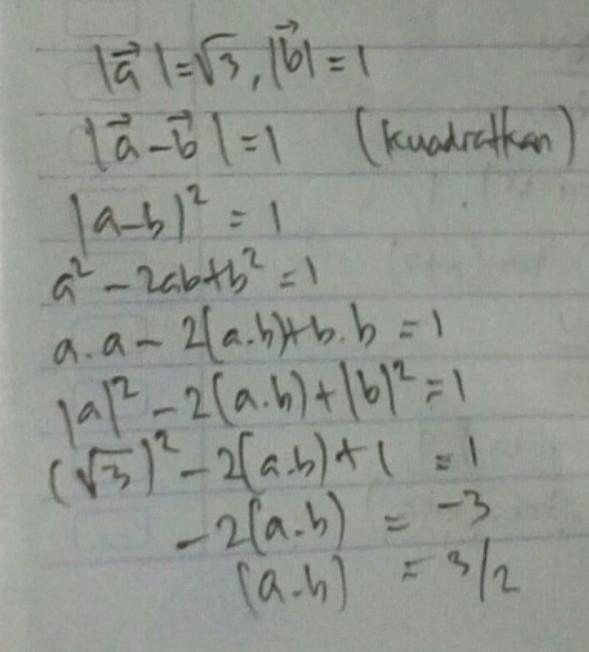 |a⃗| = √3, |b⃗| = 1
|a⃗ - b⃗| = 1 (kuadratkan)
|a-b|² = 1
a² - 2ab + b² = 1
a.a - 2(a.b) + b.b = 1
|a|² - 2(a.b) + |b|² = 1
(√3)² - 2(a.b) + 1 = 1
-2(a.b) = -3
(a.b) = 3/2